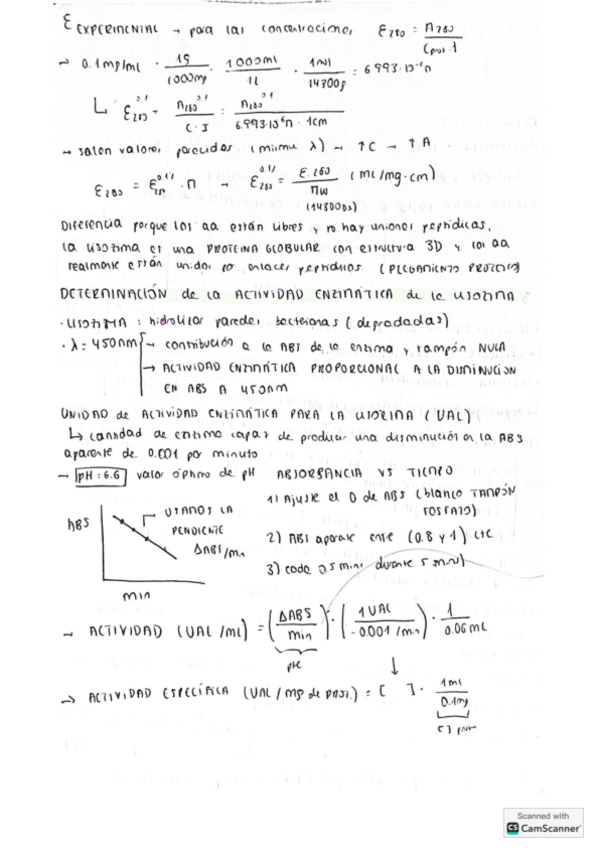 ε EXPERIMENTAL → para las concentraciones ε280 = A280 / Cprot · 1
→ 0.1 mg/ml · 1g / 1000mg · 1000ml / 1L · 1mol / 14300g = 6.993·10⁻⁶ M
↳ ε280^0.1 = A280^0.1 / C · 1 = A280^0.1 / 6.993·10⁻⁶ M · 1cm
→ salen valores parecidos (misma λ) → ↑C → ↑A
ε280 = ε280^0.1% · M → ε280^0.1% = ε280 / MW (14300Da) (ml/mg·cm)
Diferencia porque los aa están libres y no hay uniones peptídicas,
la lisozima es una PROTEINA GLOBULAR con estructura 3D y los aa
realmente están unidos por enlaces peptídicos (PLEGAMIENTO PROTEICO)
DETERMINACIÓN de la ACTIVIDAD ENZIMÁTICA de la LISOZIMA
· LISOZIMA : hidrolizar paredes bacterianas (degradadas)
· λ = 450nm → contribución a la ABS de la enzima y tampón NULA
→ ACTIVIDAD ENZIMÁTICA PROPORCIONAL A LA DISMINUCION
EN ABS A 450nm
UNIDAD de ACTIVIDAD ENZIMÁTICA PARA LA LISOZIMA (UAL)
↳ cantidad de enzima capaz de producir una disminución en la ABS
aparente de 0.001 por minuto
→ pH : 6.6 valor óptimo de pH ABSORBANCIA VS TIEMPO
1) Ajuste el 0 de ABS (blanco TAMPÓN
FOSFATO)
ABS
USAMOS LA
PENDIENTE
ΔABS/min
2) ABS aparente entre (0.8 y 1) cte
3) cada 0.5 mins durante 5 mins)
min
→ ACTIVIDAD (UAL/ml) = (ΔABS / min) · (1 UAL / -0.001 /min) · 1 / 0.06 ml
pte
→ ACTIVIDAD ESPECÍFICA (UAL / mg de prot.) = [ ] · 1ml / 0.1mg
[ ] prot
Scanned with
CS CamScanner